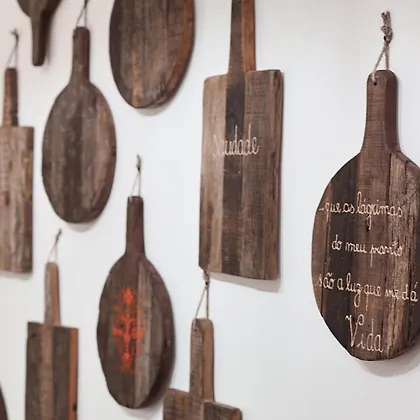 Saudade
...que as lágrimas
do meu
são a luz que me dá
Vida